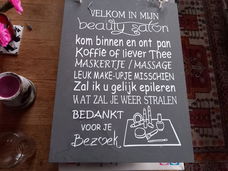 VELKOM IN MIJN
beauty salon
kom binnen en ont pan
Koffie of liever Thee
MASKERTJE / MASSAGE
LEUK MAKE-UPJE MISSCHIEN
Zal ik u gelijk epileren
WAT ZAL JE WEER STRALEN
BEDANKT
VOOR JE
Bezoek